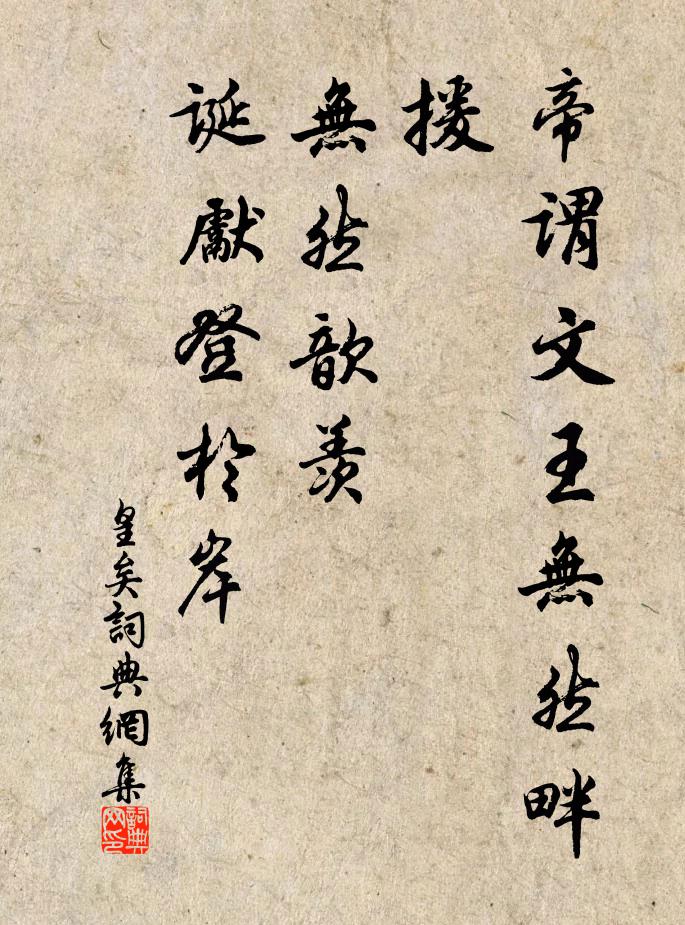 帝謂文王無然畔
援
無然歆羨
誕獻登於岸
皇矣詞典網集
詞典
网印